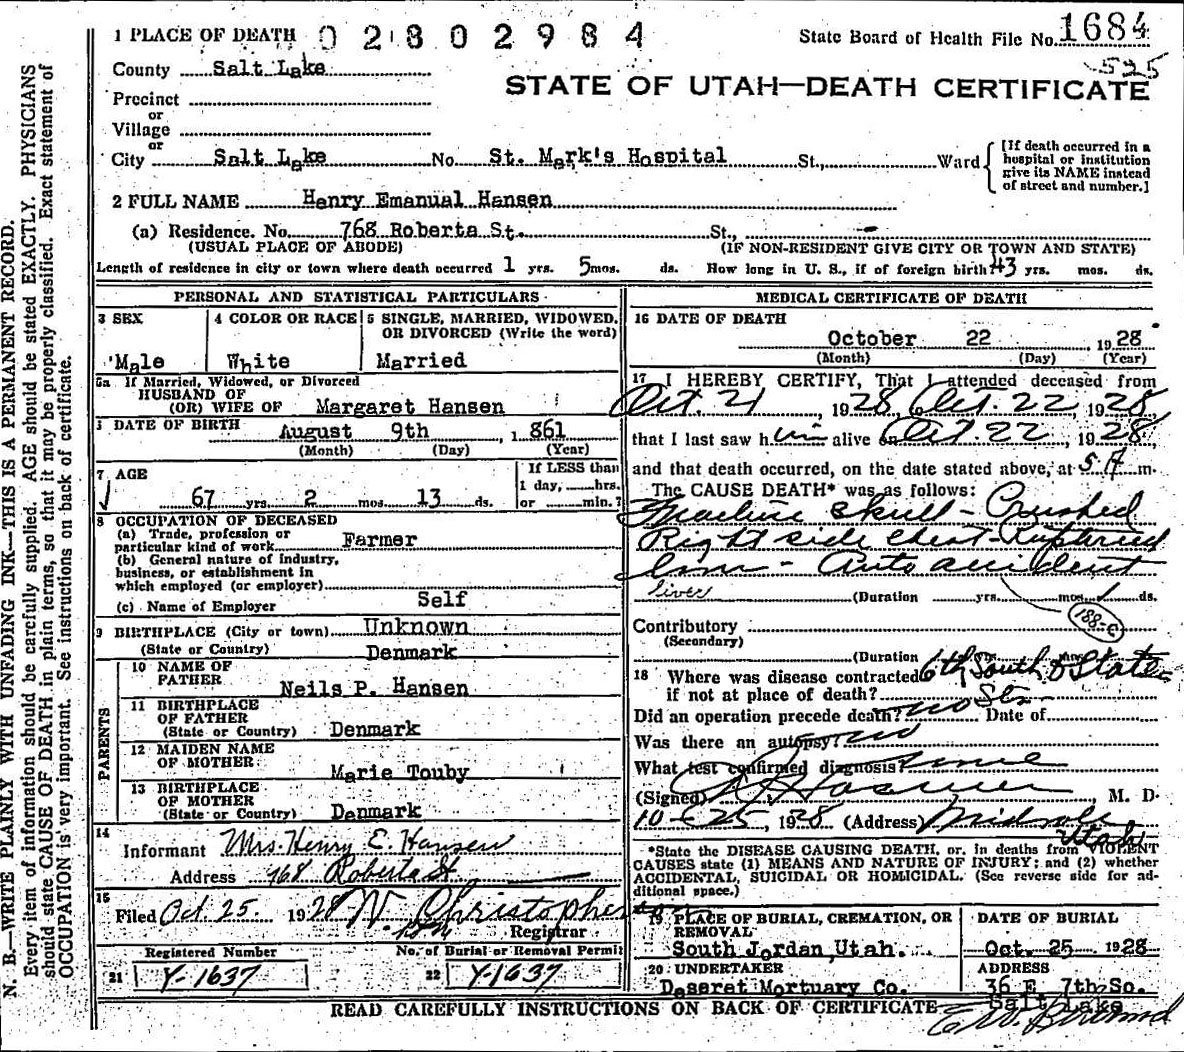 1 PLACE OF DEATH 02802984 State Board of Health File No. 1684
525
County Salt Lake
STATE OF UTAH—DEATH CERTIFICATE
Precinct
or
Village
or
City Salt Lake No. St. Mark's Hospital St., Ward
[If death occurred in a hospital or institution give its NAME instead of street and number.]
2 FULL NAME Henry Emanual Hansen
(a) Residence. No. 768 Roberta St. St.,
(USUAL PLACE OF ABODE) (IF NON-RESIDENT GIVE CITY OR TOWN AND STATE)
Length of residence in city or town where death occurred 1 yrs. 5 mos. ds. How long in U. S., if of foreign birth? 43 yrs. mos. ds.
PERSONAL AND STATISTICAL PARTICULARS
3 SEX 4 COLOR OR RACE 5 SINGLE, MARRIED, WIDOWED, OR DIVORCED (Write the word)
Male White Married
5a If Married, Widowed, or Divorced
HUSBAND OF
(OR) WIFE OF Margaret Hansen
DATE OF BIRTH August 9th, 1861
(Month) (Day) (Year)
7 AGE If LESS than
1 day, hrs.
67 yrs. 2 mos. 13 ds. or min.?
8 OCCUPATION OF DECEASED
(a) Trade, profession or
particular kind of work Farmer
(b) General nature of industry,
business, or establishment in
which employed (or employer)
(c) Name of Employer Self
9 BIRTHPLACE (City or town) Unknown
(State or Country) Denmark
PARENTS
10 NAME OF
FATHER Neils P. Hansen
11 BIRTHPLACE
OF FATHER
(State or Country) Denmark
12 MAIDEN NAME
OF MOTHER Marie Touby
13 BIRTHPLACE
OF MOTHER
(State or Country) Denmark
14
Informant Mrs. Henry E. Hansen
Address 768 Roberta St
15
Filed Oct. 25. 1928 Registrar
Registered Number No. of Burial or Removal Permit
21 Y-1637 22 Y-1637
MEDICAL CERTIFICATE OF DEATH
16 DATE OF DEATH
October 22, 1928
(Month) (Day) (Year)
17 I HEREBY CERTIFY, That I attended deceased from
Oct. 21, 1928, to Oct. 22, 1928
that I last saw him alive on Oct. 22, 1928,
and that death occurred, on the date stated above, at 5 A m.
The CAUSE DEATH* was as follows:
Fracture Skull - Crushed
Right side chest - Ruptured
Auto accident
liver (Duration yrs. mos. 1 ds.
188-c
Contributory
(Secondary)
(Duration
18 Where was disease contracted 6th South & State
if not at place of death? Sts
Did an operation precede death? no Date of
Was there an autopsy? no
What test confirmed diagnosis? none
(Signed) M. D.
10-25, 1928 (Address) Midvale
Utah
*State the DISEASE CAUSING DEATH, or, in deaths from VIOLENT
CAUSES state (1) MEANS AND NATURE OF INJURY; and (2) whether
ACCIDENTAL, SUICIDAL OR HOMICIDAL. (See reverse side for ad-
ditional space.)
19 PLACE OF BURIAL, CREMATION, OR REMOVAL DATE OF BURIAL
South Jordan, Utah. Oct. 25 1928
20 UNDERTAKER ADDRESS
Deseret Mortuary Co. 36 E 7th So.
Salt Lake
READ CAREFULLY INSTRUCTIONS ON BACK OF CERTIFICATE
N. B.—WRITE PLAINLY WITH UNFADING INK—THIS IS A PERMANENT RECORD.
Every item of information should be carefully supplied. AGE should be stated EXACTLY. PHYSICIANS
should state CAUSE OF DEATH in plain terms, so that it may be properly classified. Exact statement of
OCCUPATION is very important. See instructions on back of certificate.